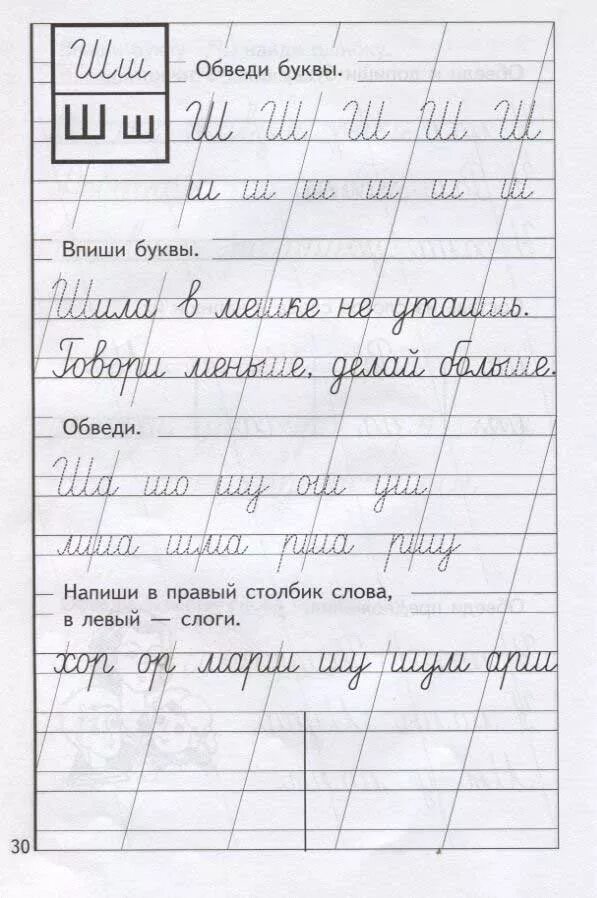 Шш
Обведи буквы.
Ш ш
Ш Ш Ш Ш Ш
ш ш ш ш ш ш
Впиши буквы.
Шила в мешке не утаишь.
Говори меньше, делай больше.
Обведи.
Ша шо шу ош уш
лиша шма рша ршу
Напиши в правый столбик слова,
в левый — слоги.
хор ор марш шу шум арш
30